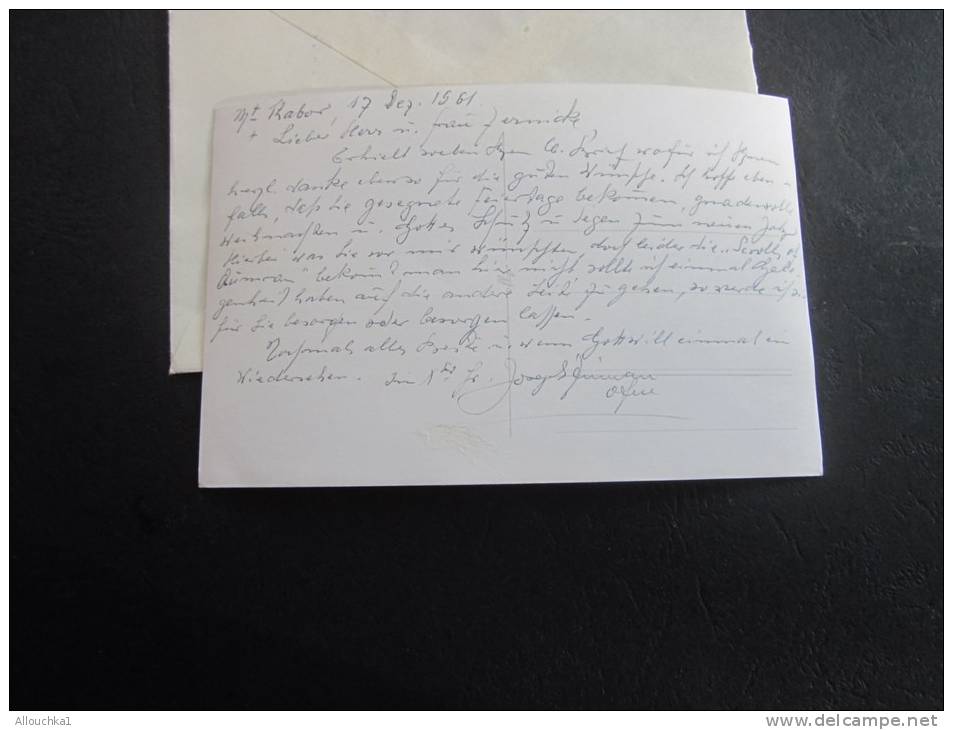 Mt Tabor, 17 Dez. 1961.
+ Lieber Herr u. Frau Jernicke
Erhielt soeben Ihren lb. Brief wofür ich Ihnen
herzl. danke ebenso für die guten Wünsche. Ich hoffe eben-
falls, daß Sie gesegnete Feiertage bekommen, gnadenvolle
Weihnachten u. Gottes Schutz u. Segen zum neuen Jahr
Hierbei was Sie von mir wünschten, doch leider die „Scrolls of
Qumran" bekommt man hier nicht sollte ich einmal Gele-
genheit haben auf die andere Seite zu gehen, so werde ich sie
für Sie besorgen oder besorgen lassen.
Nochmals alles Beste u. wenn Gott will einmal ein
Wiedersehen. Im Fr. Joseph
ofm
Allouchka1
www.delcampe.net